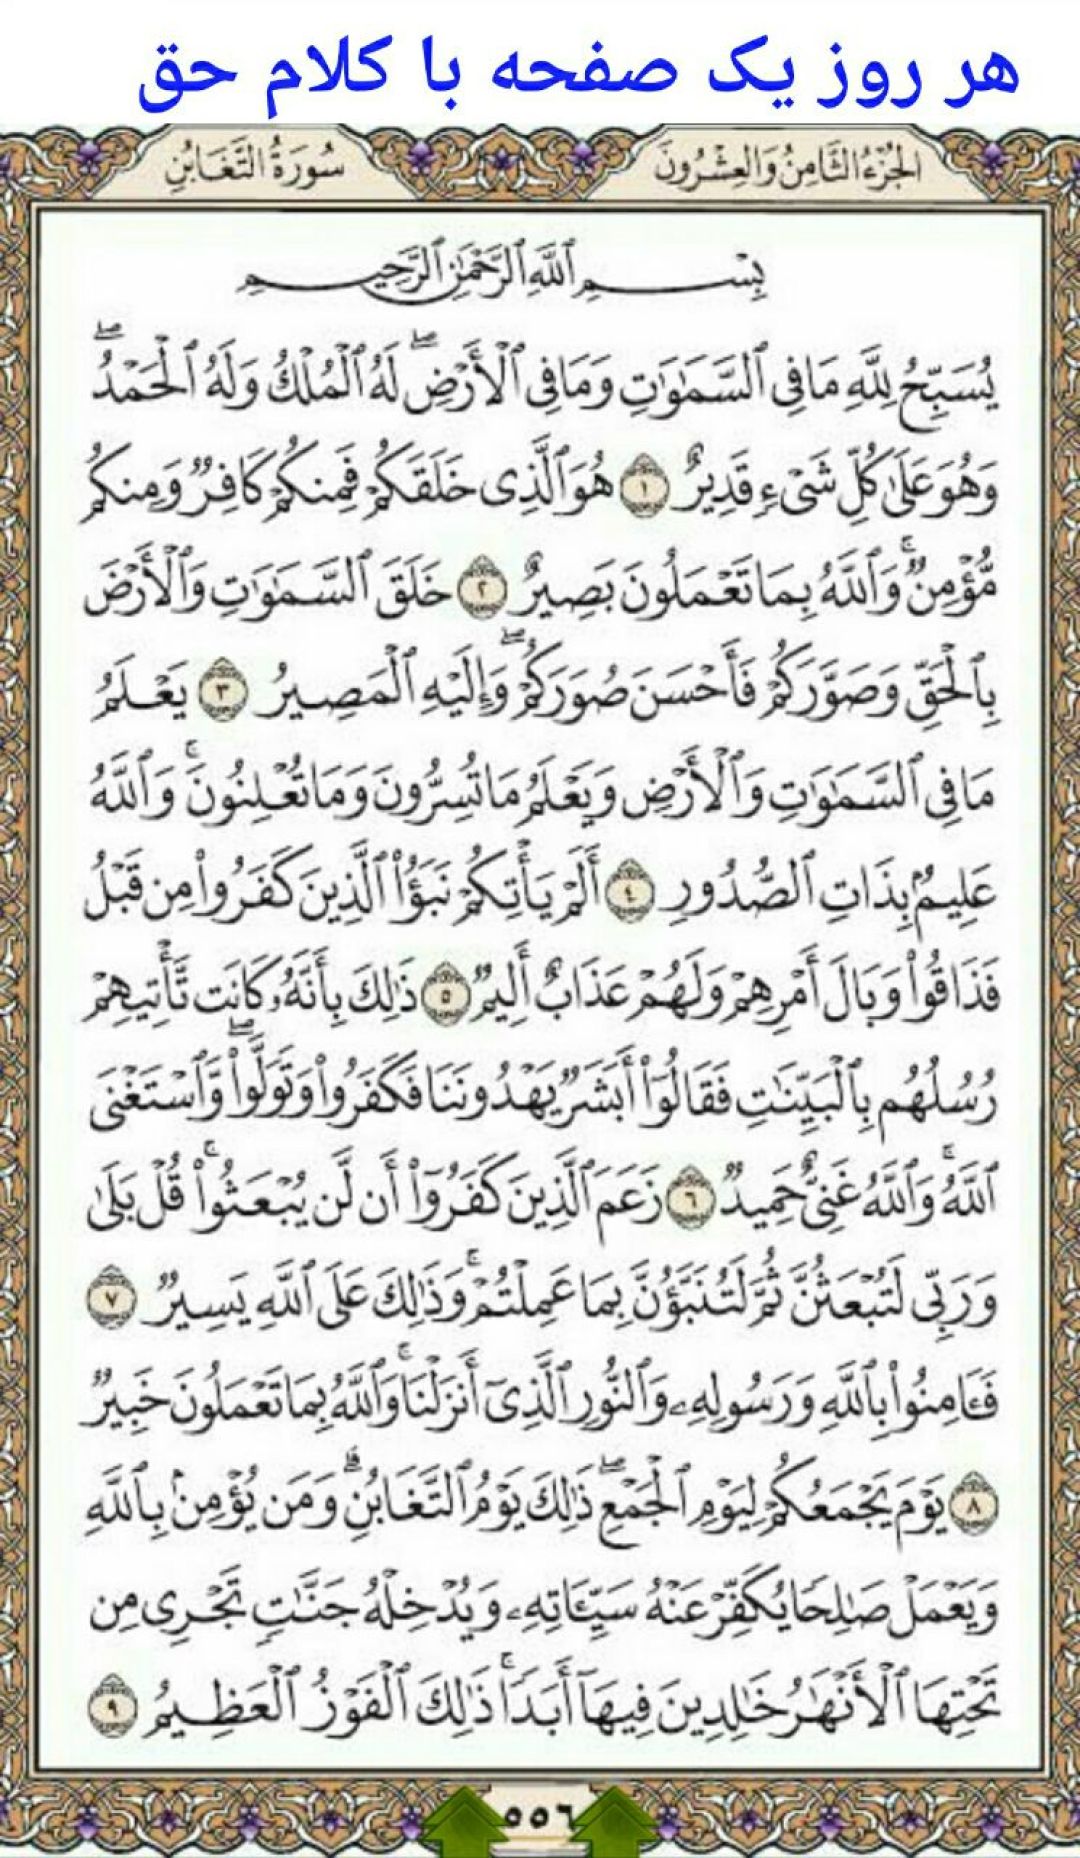 هر روز یک صفحه با کلام حق
الجُزْءُ الثَّامِنُ وَالعِشْرُونَ
سُورَةُ التَّغَابُنِ
بِسْمِ ٱللَّهِ ٱلرَّحْمَٰنِ ٱلرَّحِيمِ
يُسَبِّحُ لِلَّهِ مَا فِى ٱلسَّمَٰوَٰتِ وَمَا فِى ٱلْأَرْضِ ۖ لَهُ ٱلْمُلْكُ وَلَهُ ٱلْحَمْدُ ۖ
وَهُوَ عَلَىٰ كُلِّ شَىْءٍ قَدِيرٌ ١ هُوَ ٱلَّذِى خَلَقَكُمْ فَمِنكُمْ كَافِرٌ وَمِنكُم
مُّؤْمِنٌ ۚ وَٱللَّهُ بِمَا تَعْمَلُونَ بَصِيرٌ ٢ خَلَقَ ٱلسَّمَٰوَٰتِ وَٱلْأَرْضَ
بِٱلْحَقِّ وَصَوَّرَكُمْ فَأَحْسَنَ صُوَرَكُمْ ۖ وَإِلَيْهِ ٱلْمَصِيرُ ٣ يَعْلَمُ
مَا فِى ٱلسَّمَٰوَٰتِ وَٱلْأَرْضِ وَيَعْلَمُ مَا تُسِرُّونَ وَمَا تُعْلِنُونَ ۚ وَٱللَّهُ
عَلِيمٌۢ بِذَاتِ ٱلصُّدُورِ ٤ أَلَمْ يَأْتِكُمْ نَبَؤُا۟ ٱلَّذِينَ كَفَرُوا۟ مِن قَبْلُ
فَذَاقُوا۟ وَبَالَ أَمْرِهِمْ وَلَهُمْ عَذَابٌ أَلِيمٌ ٥ ذَٰلِكَ بِأَنَّهُۥ كَانَت تَّأْتِيهِمْ
رُسُلُهُم بِٱلْبَيِّنَٰتِ فَقَالُوٓا۟ أَبَشَرٌ يَهْدُونَنَا فَكَفَرُوا۟ وَتَوَلَّوا۟ ۖ وَّٱسْتَغْنَى
ٱللَّهُ ۚ وَٱللَّهُ غَنِىٌّ حَمِيدٌ ٦ زَعَمَ ٱلَّذِينَ كَفَرُوٓا۟ أَن لَّن يُبْعَثُوا۟ ۚ قُلْ بَلَىٰ
وَرَبِّى لَتُبْعَثُنَّ ثُمَّ لَتُنَبَّؤُنَّ بِمَا عَمِلْتُمْ ۚ وَذَٰلِكَ عَلَى ٱللَّهِ يَسِيرٌ ٧
فَـَٔامِنُوا۟ بِٱللَّهِ وَرَسُولِهِۦ وَٱلنُّورِ ٱلَّذِىٓ أَنزَلْنَا ۚ وَٱللَّهُ بِمَا تَعْمَلُونَ خَبِيرٌ
٨ يَوْمَ يَجْمَعُكُمْ لِيَوْمِ ٱلْجَمْعِ ۖ ذَٰلِكَ يَوْمُ ٱلتَّغَابُنِ ۗ وَمَن يُؤْمِنۢ بِٱللَّهِ
وَيَعْمَلْ صَٰلِحًا يُكَفِّرْ عَنْهُ سَيِّـَٔاتِهِۦ وَيُدْخِلْهُ جَنَّٰتٍ تَجْرِى مِن
تَحْتِهَا ٱلْأَنْهَٰرُ خَٰلِدِينَ فِيهَآ أَبَدًا ۚ ذَٰلِكَ ٱلْفَوْزُ ٱلْعَظِيمُ ٩
٥٥٦